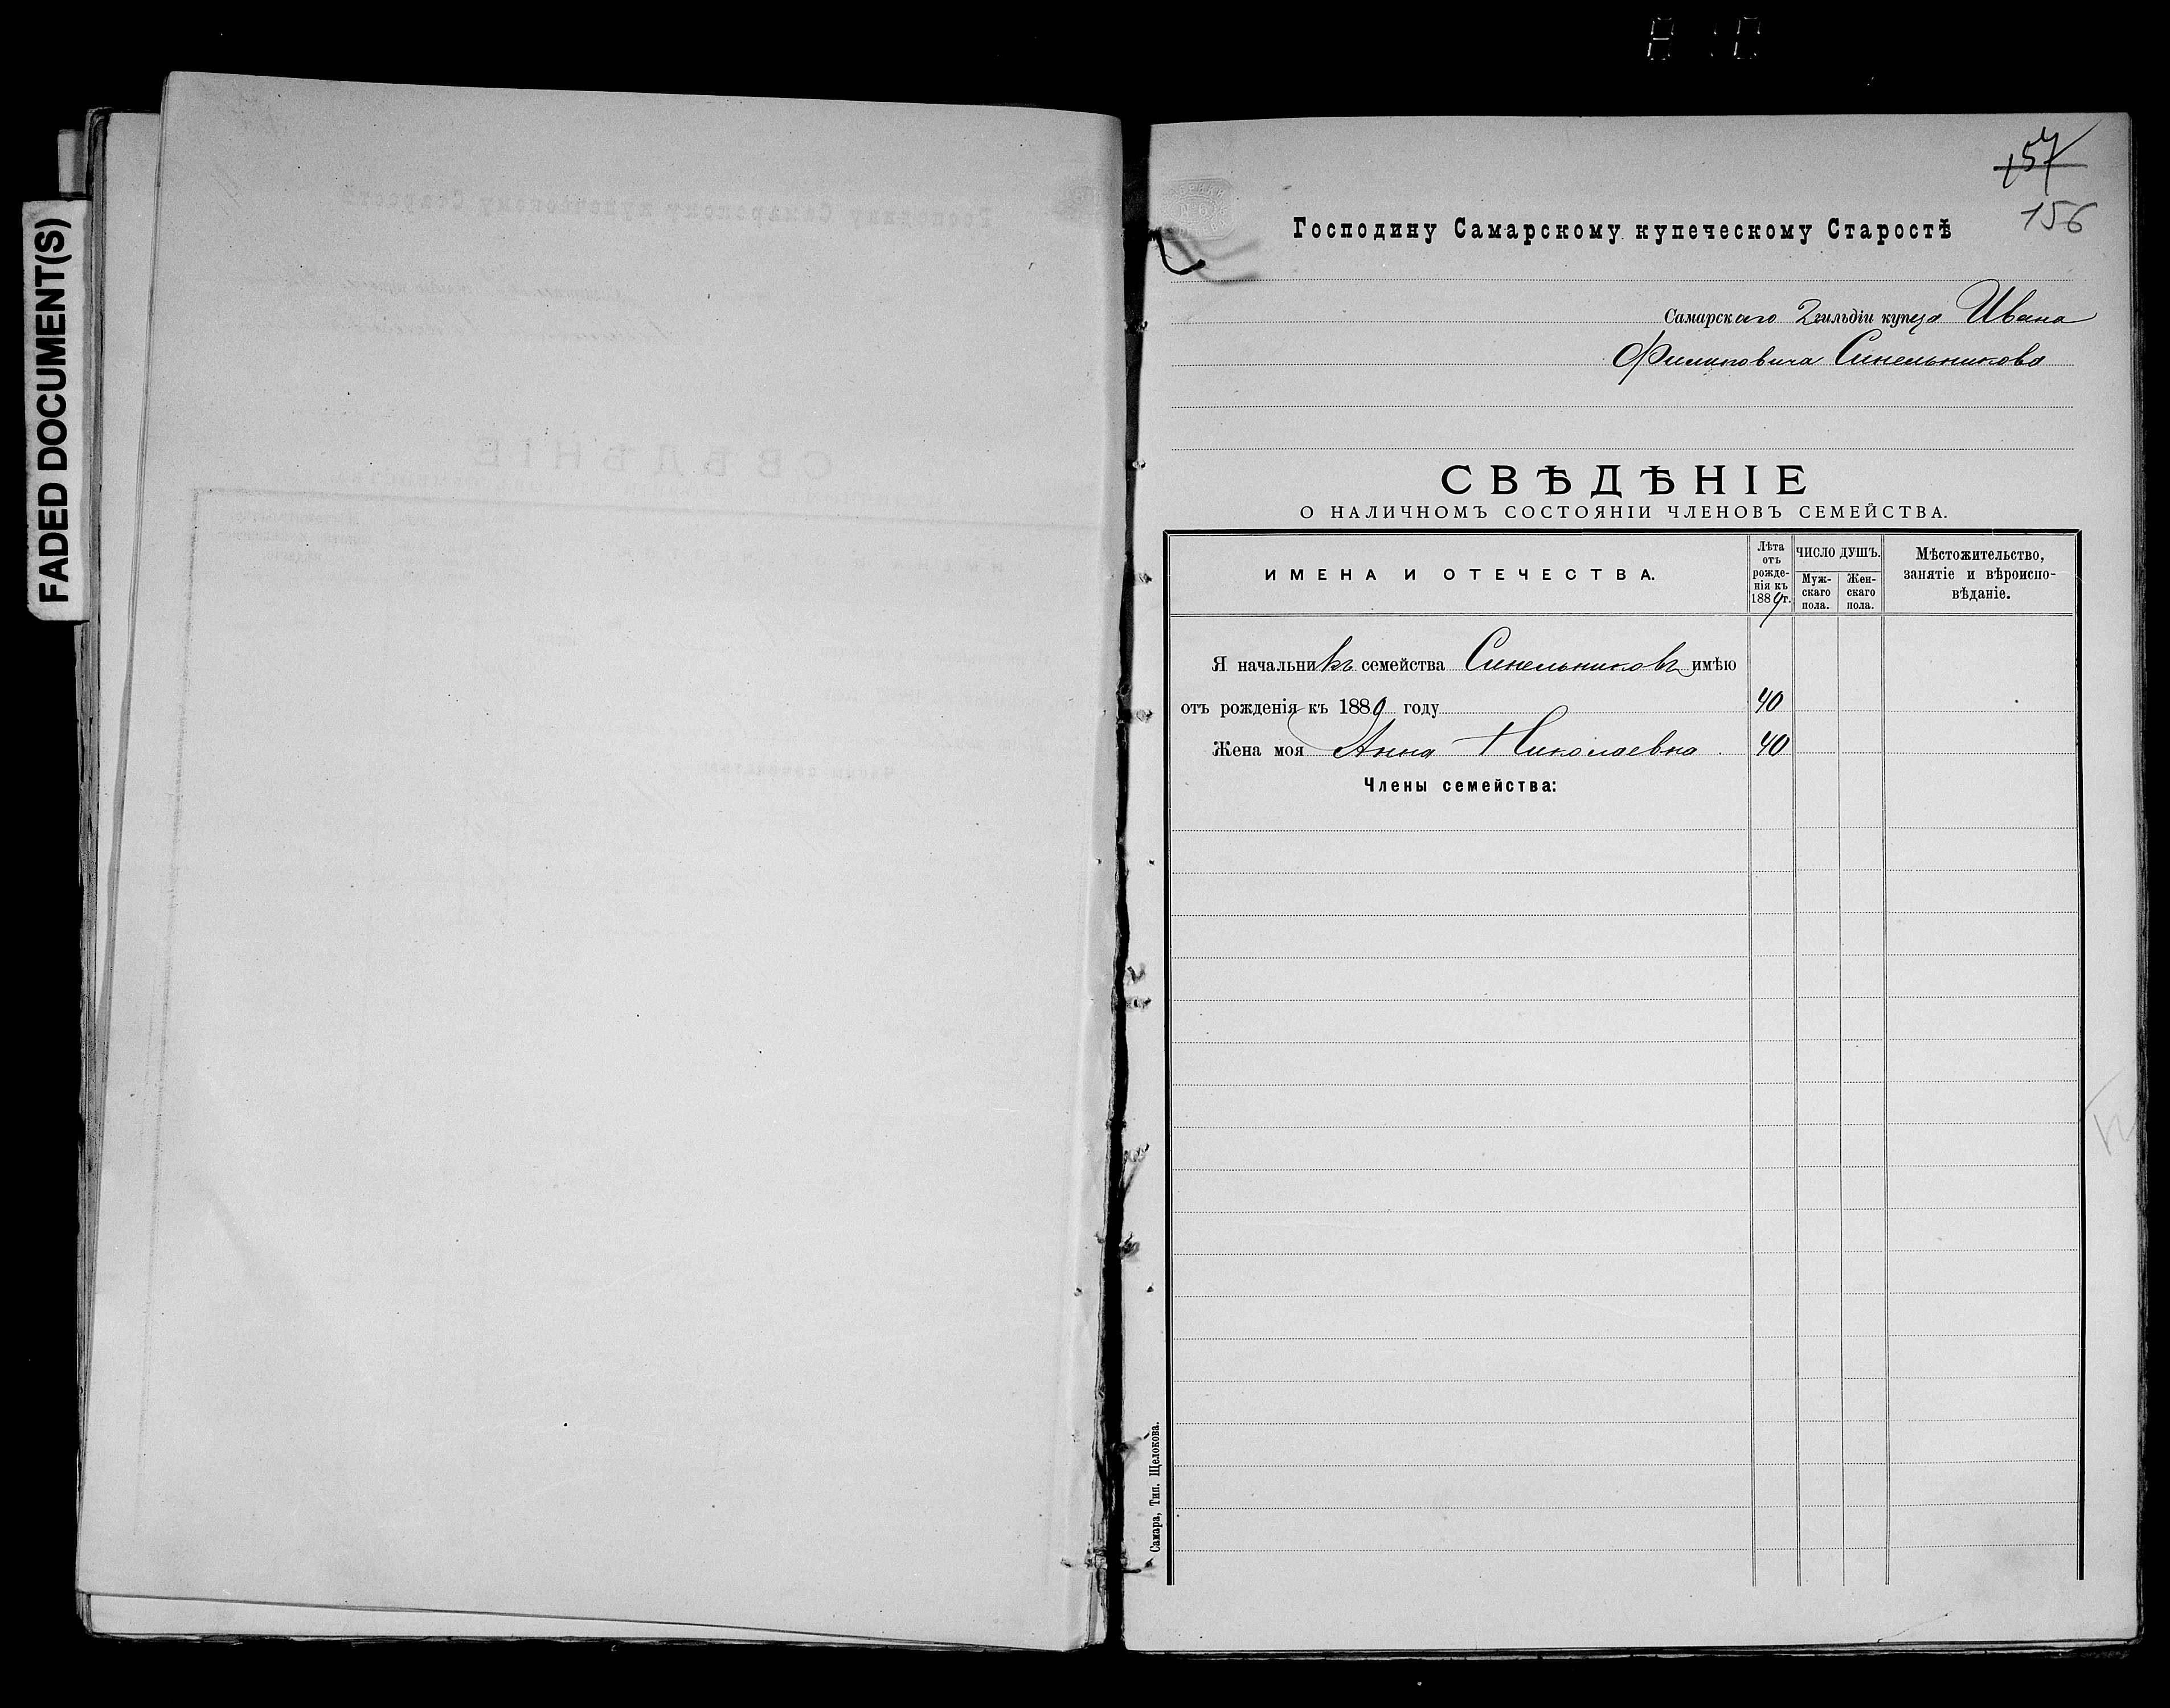 FADED DOCUMENT(S)
157
156
Господину Самарскому купеческому Старостѣ
Самарскаго 2 гильдіи купца Ивана
Филиповича Синельникова
СВѢДѢНІЕ
О НАЛИЧНОМЪ СОСТОЯНІИ ЧЛЕНОВЪ СЕМЕЙСТВА.
ИМЕНА И ОТЕЧЕСТВА.
Лѣта
отъ
рожде-
нія къ
1889 г.
ЧИСЛО ДУШЪ.
Муж-
скаго
пола.
Жен-
скаго
пола.
Мѣстожительство,
занятіе и вѣроиспо-
вѣданіе.
Я начальникъ семейства Синельниковъ имѣю
отъ рожденія къ 1889 году 40
Жена моя Анна Николаевна 40
Члены семейства:
Самара, Тип. Щелокова.